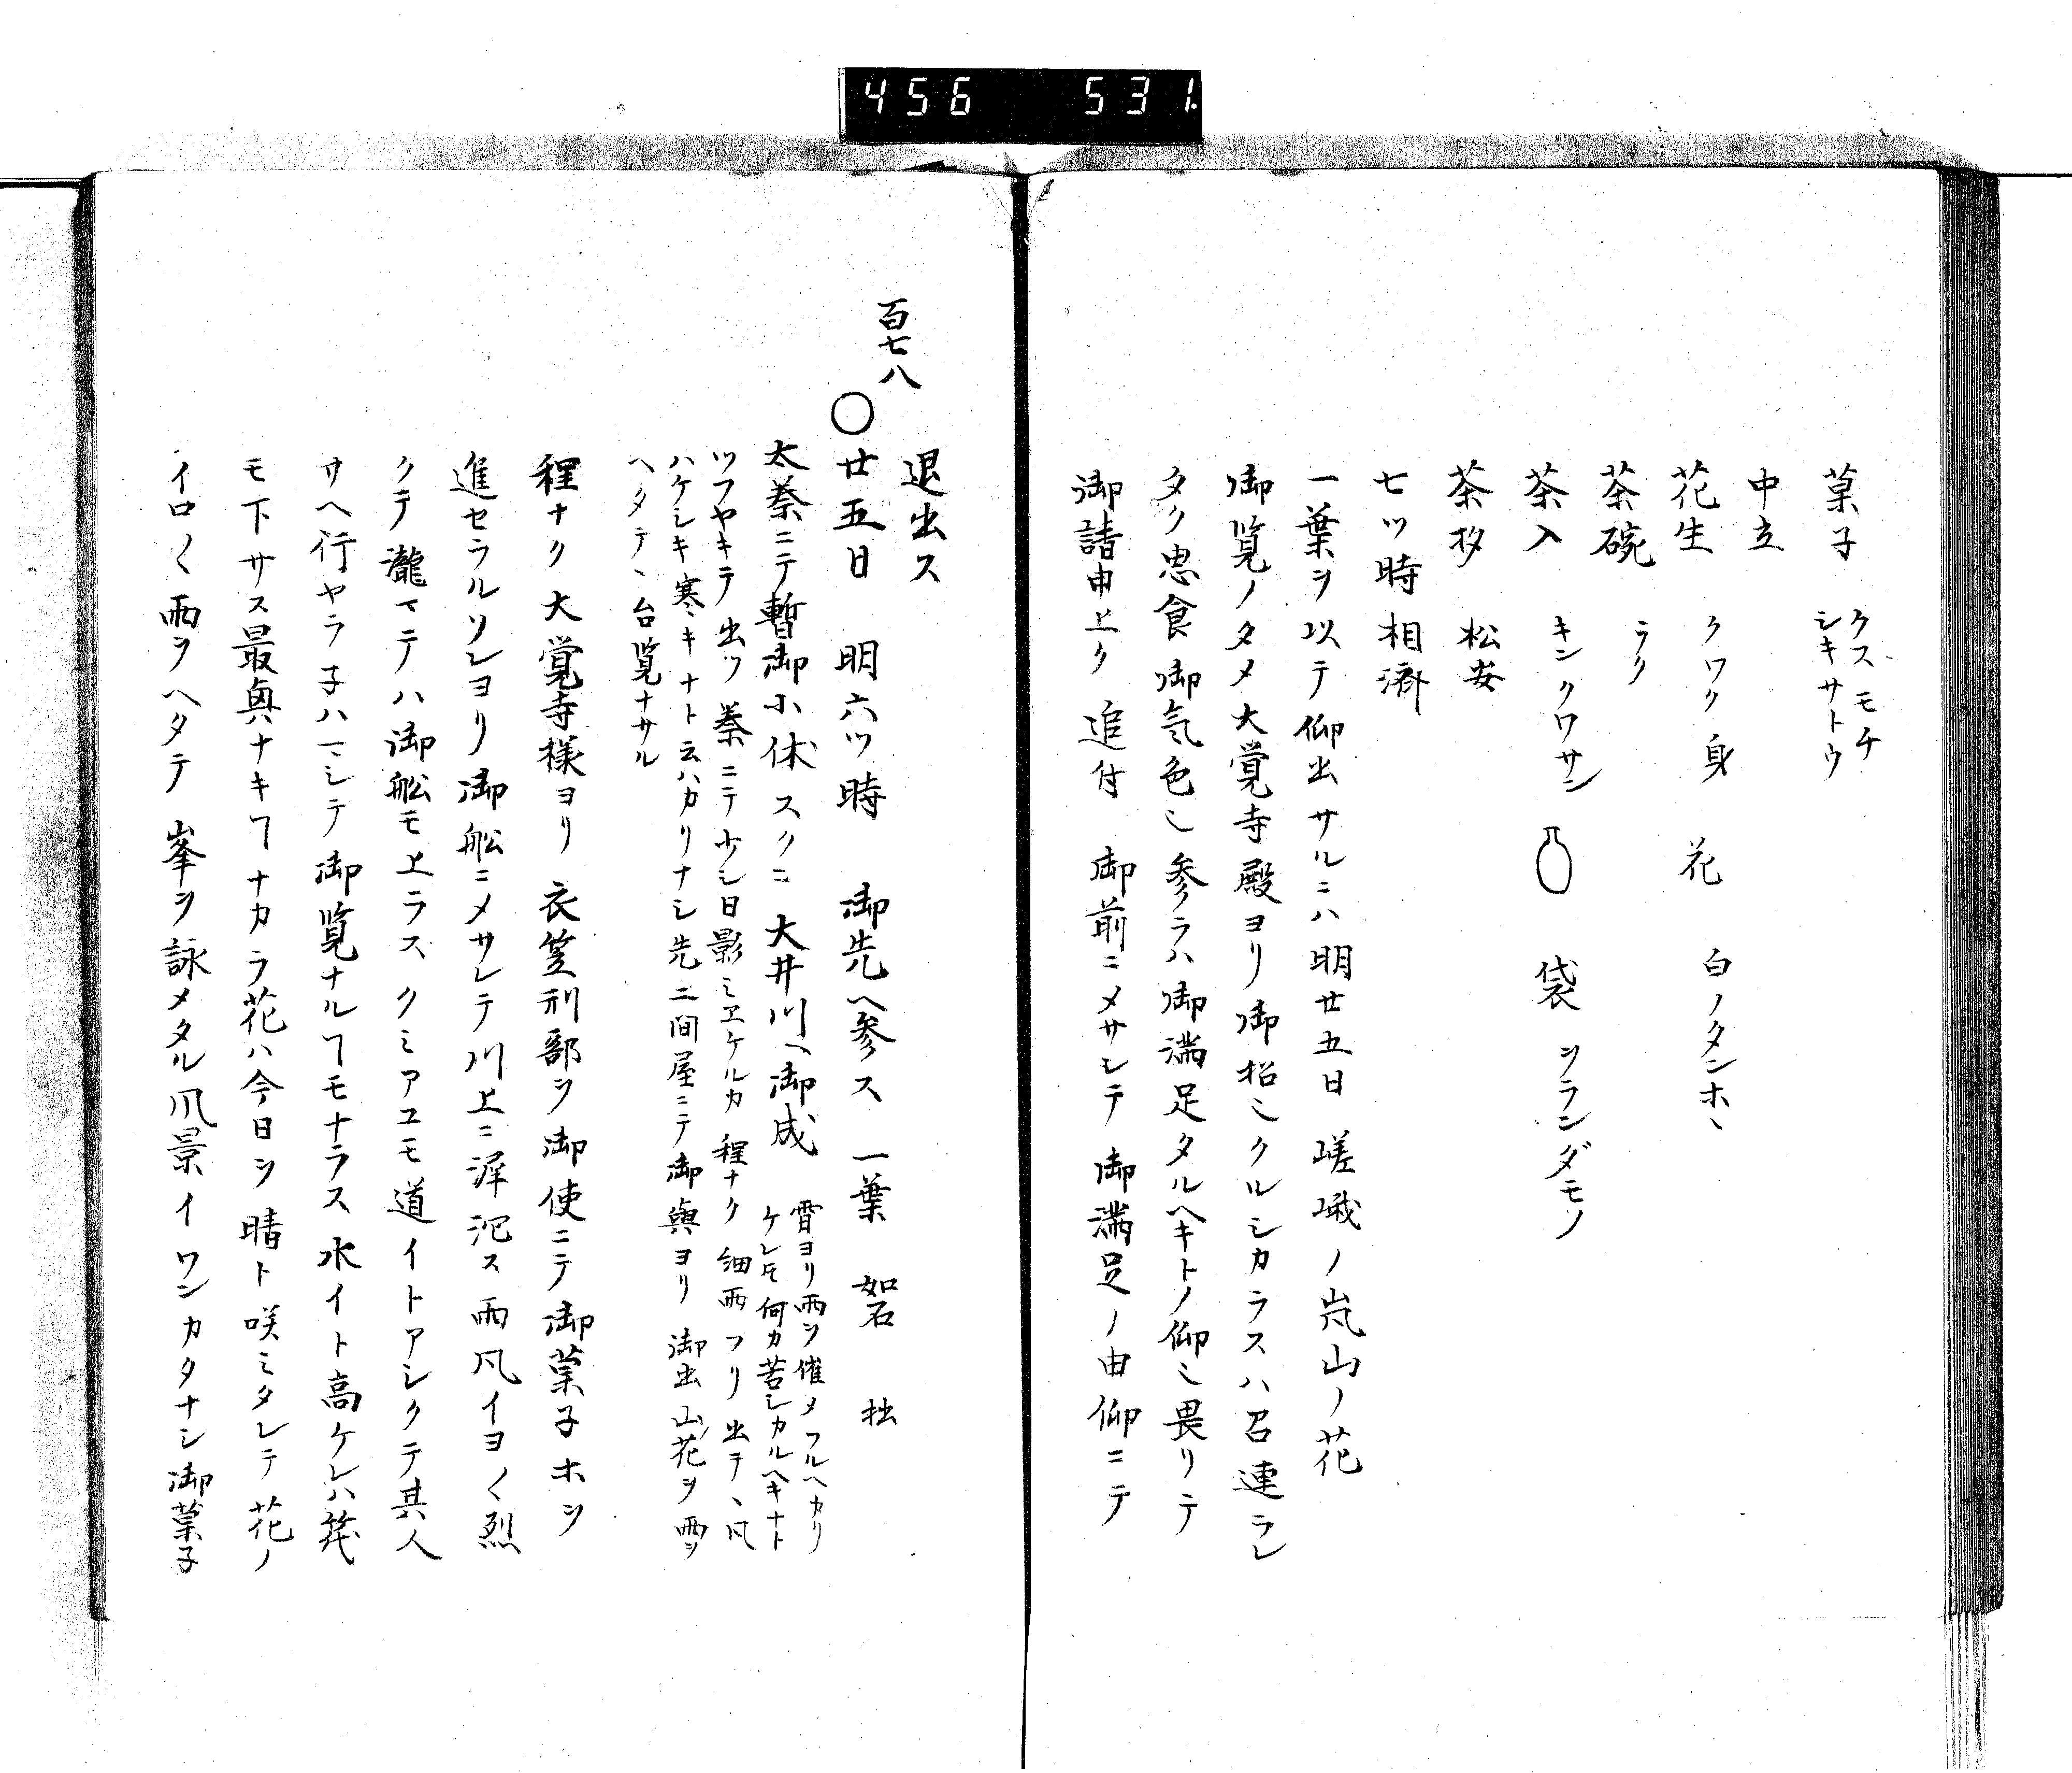 456 531.
菓子 クスモチ
シキサトウ
中立
花生 クワク身 花 白ノタンホヽ
茶碗 ラク
茶入 キンクワサン 袋 シランダモノ
茶杓 松安
七ツ時相済
一葉ヲ以テ仰出サルニハ明廿五日嵯峨ノ嵐山ノ花
御覧ノタメ大覚寺殿ヨリ御招ミクルシカラスハ召連ラレ
タク思食御気色ミ参ラハ御満足タルヘキトノ仰ミ畏リテ
御請申上ク追付御前ニメサレテ御満足ノ由仰ニテ
退出ス
百七八
〇廿五日 明六ツ時 御先ヘ参ス 一葉 如石 拙
太秦ニテ暫御小休スクニ大井川ヘ御成 宵ヨリ雨ヲ催メフルヘカリ
ケレ𪜈何カ苦シカルヘキナト
ツフヤキテ出ツ秦ニテ少シ日影ミヱケルカ程ナク細雨フリ出テヽ風
ハケシキ寒キナト云ハカリナシ先ニ間屋ニテ御輿ヨリ御出山花ヲ雨ヲ
ヘタテヽ台覧ナサル
程ナク大覚寺様ヨリ衣笠刑部ヲ御使ニテ御菓子ホヲ
進セラルソレヨリ御舩ニメサレテ川上ニ泝汜ス雨風イヨ〱烈
クテ瀧マテハ御舩モ上ラスクミアユモ道イトアシクテ其人
サヘ行ヤラ子ハマシテ御覧ナルヿモナラス水イト高ケレハ筏
モ下サス最興ナキヿナカラ花ハ今日ヲ晴ト咲ミタレテ花ノ
イロ〱雨ヲヘタテ峯ヲ詠メタル風景イワンカタナシ御菓子